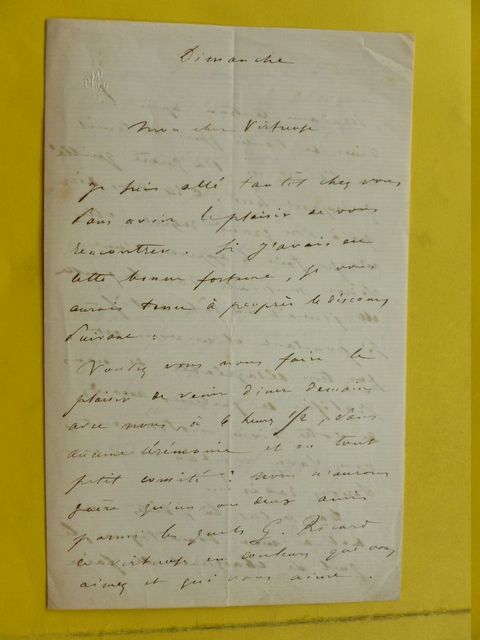 Dimanche
Mon cher Virtuose
Je suis allé tantôt chez vous
sans avoir le plaisir de vous
rencontrer. Si j'avais eu
cette bonne fortune, je vous
aurais tenu à peu près le discours
suivant :
Voulez vous nous faire le
plaisir de venir diner demain
avec nous à 6 heures 1/2, sans
aucune cérémonie et en tout
petit comité ? nous n'aurons
guère qu'un ou deux amis
parmi les quels G. Ricard
ce virtuose en couleurs qui vous
aimez et qui vous aime.